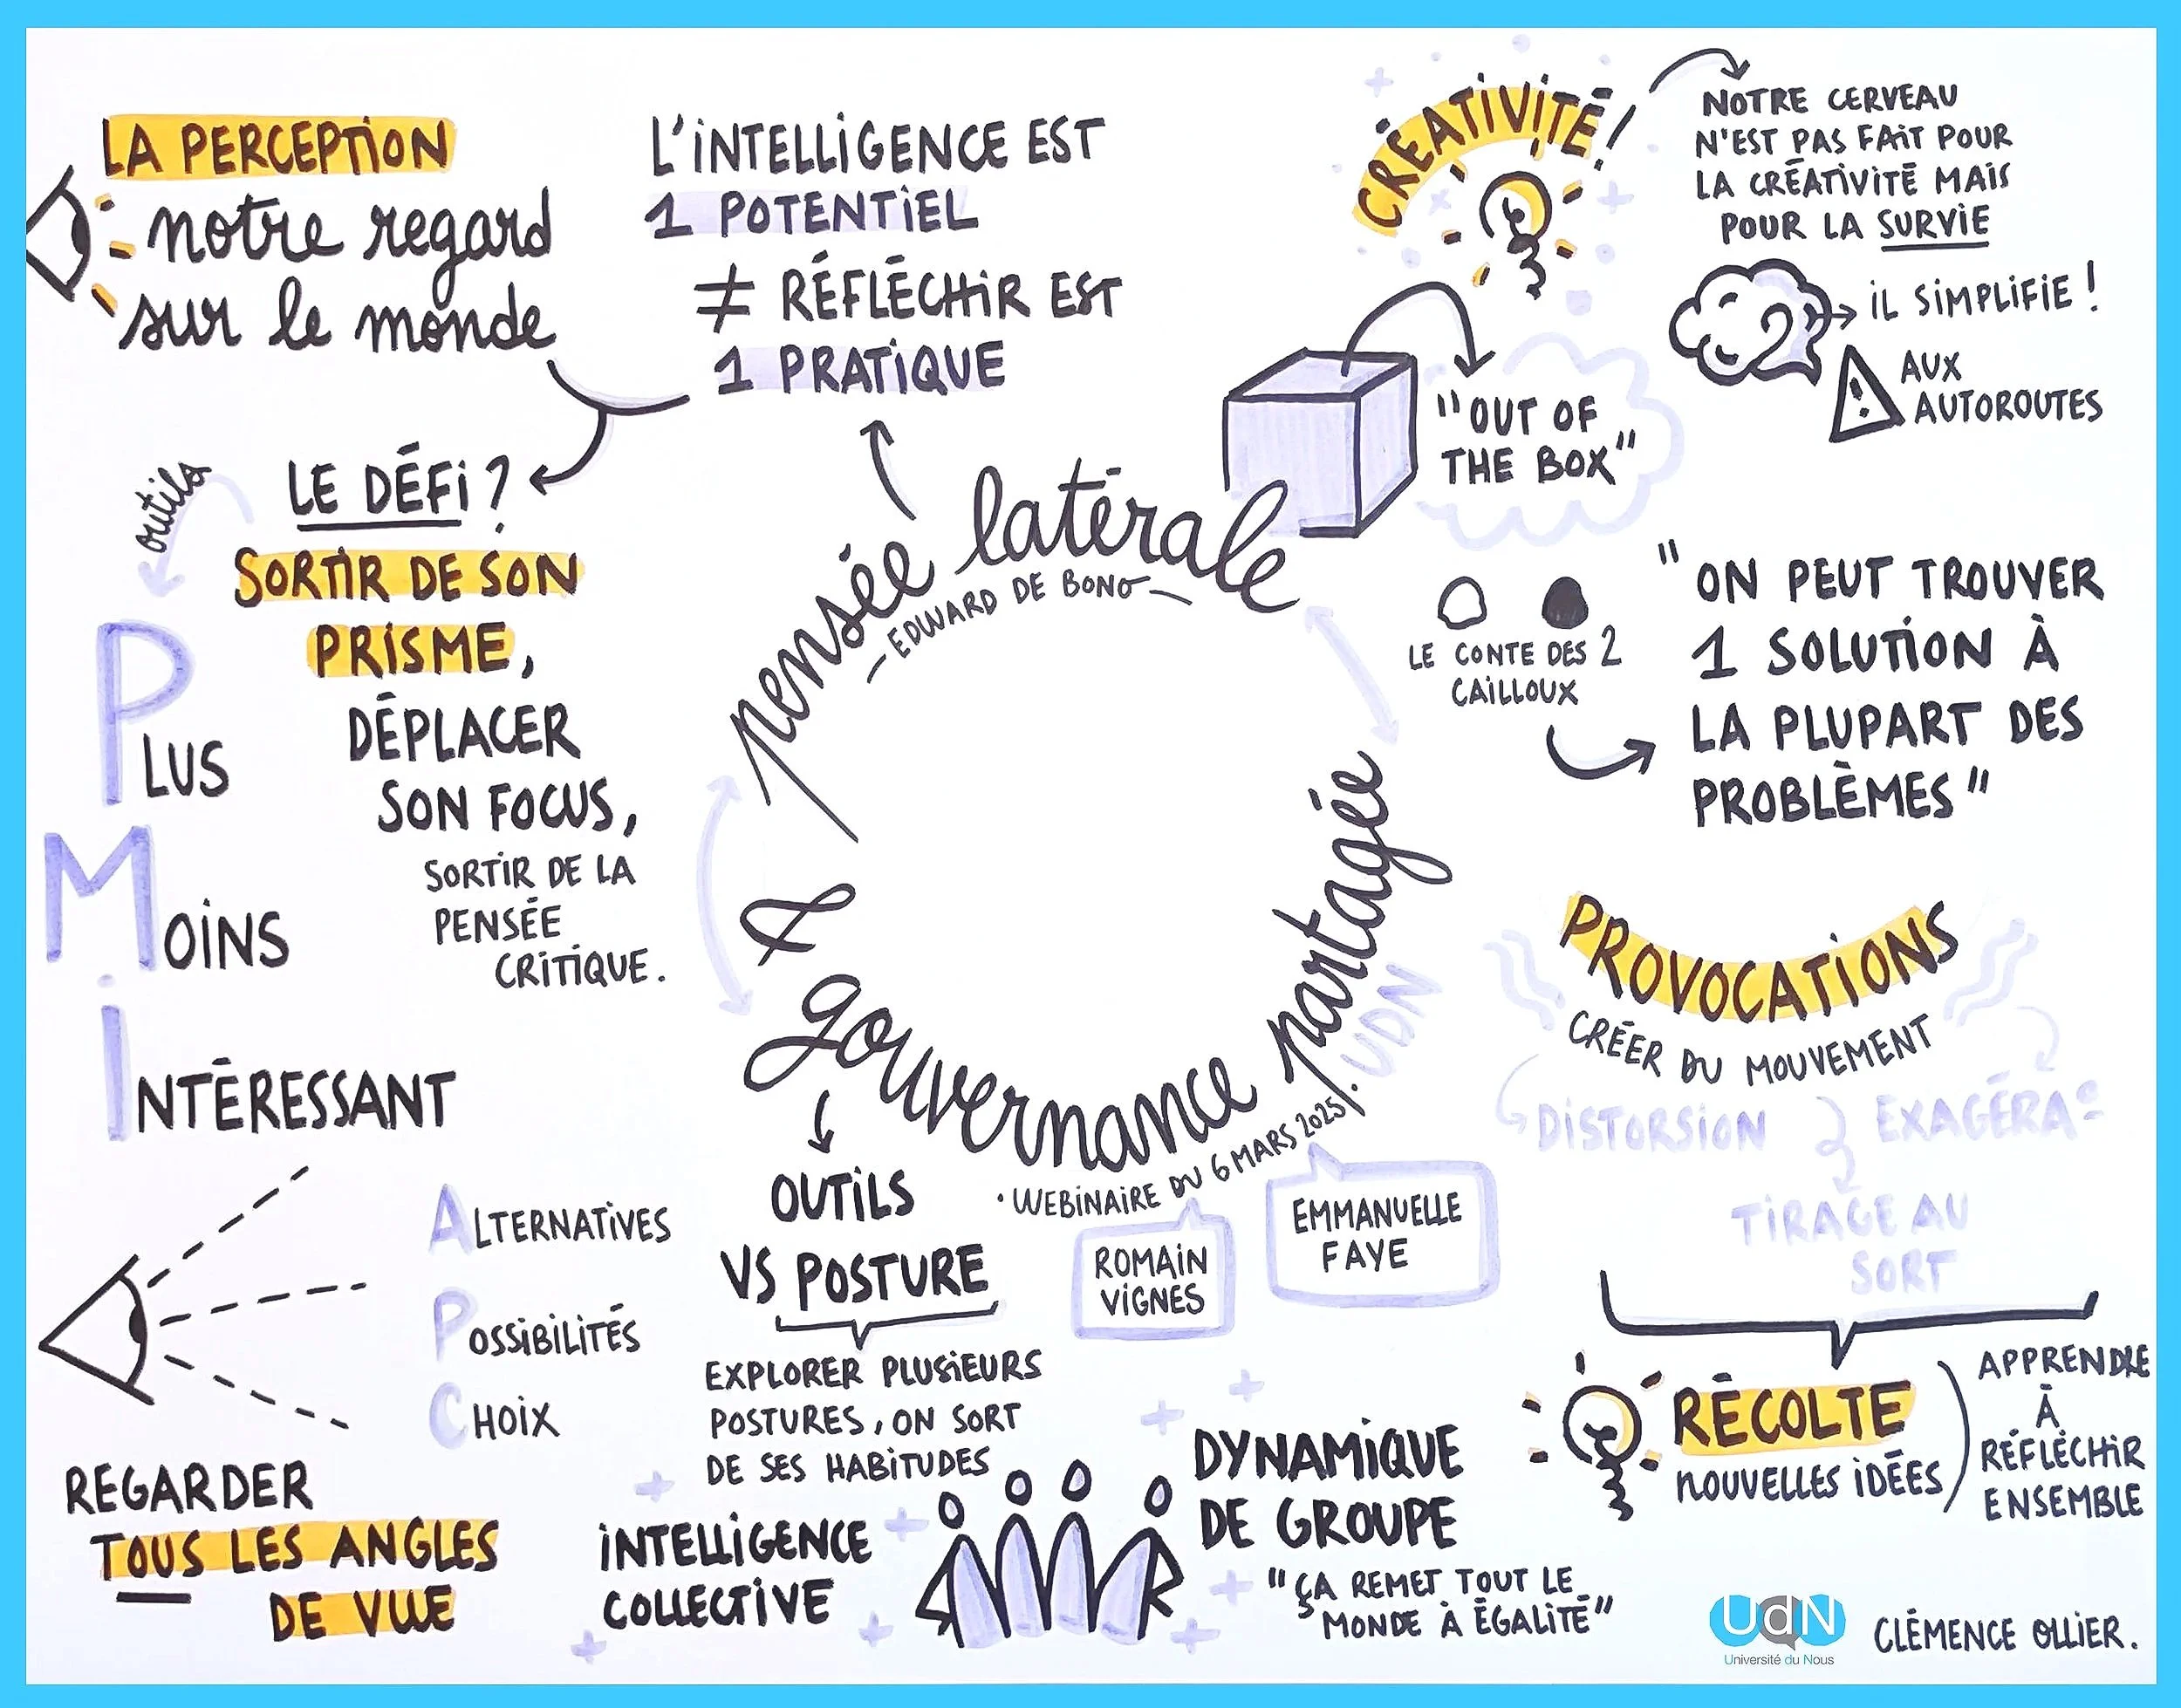 LA PERCEPTION
notre regard
sur le monde
L'INTELLIGENCE EST
1 POTENTIEL
≠ RÉFLÉCHIR EST
1 PRATIQUE
CRÉATIVITÉ !
NOTRE CERVEAU
N'EST PAS FAIT POUR
LA CRÉATIVITÉ MAIS
POUR LA SURVIE
IL SIMPLIFIE !
AUX
AUTOROUTES
"OUT OF
THE BOX"
LE DÉFI ?
SORTIR DE SON
PRISME,
DÉPLACER
SON FOCUS,
SORTIR DE LA
PENSÉE
CRITIQUE.
outils
PLUS
MOINS
INTÉRESSANT
pensée latérale
- EDWARD DE BONO -
& gouvernance partagée
• WEBINAIRE DU 6 MARS 2025/. UDN
ROMAIN
VIGNES
EMMANUELLE
FAYE
LE CONTE DES 2
CAILLOUX
"ON PEUT TROUVER
1 SOLUTION À
LA PLUPART DES
PROBLÈMES"
PROVOCATIONS
CRÉER DU MOUVEMENT
DISTORSION
EXAGÉRA°
TIRAGE AU
SORT
RÉCOLTE
NOUVELLES IDÉES
APPRENDRE
À
RÉFLÉCHIR
ENSEMBLE
ALTERNATIVES
POSSIBILITÉS
CHOIX
REGARDER
TOUS LES ANGLES
DE VUE
OUTILS
VS POSTURE
EXPLORER PLUSIEURS
POSTURES, ON SORT
DE SES HABITUDES
INTELLIGENCE
COLLECTIVE
DYNAMIQUE
DE GROUPE
"ÇA REMET TOUT LE
MONDE À ÉGALITÉ"
UdN
Université du Nous
CLÉMENCE OLLIER.